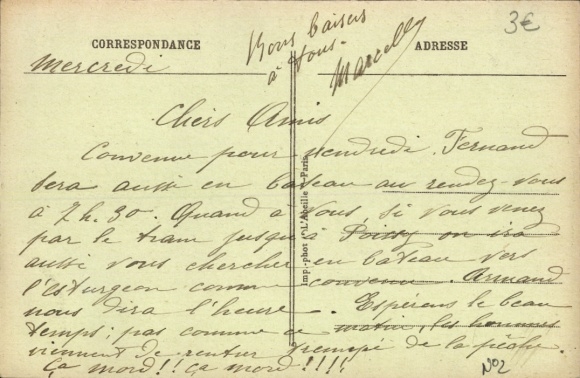 3€
CORRESPONDANCE
ADRESSE
Bons baisers
à Vous.
Marcelle
Mercredi
Chers Amis
Convenu pour vendredi. Fernand
sera aussi en bateau au rendez-vous
à 7h.30. Quand à Vous, si vous venez
par le tram jusqu'à Poissy on ira
aussi vous chercher en bateau vers
l'Esturgeon comme convenu. Armand
nous dira l'heure. Espérons le beau
temps; pas comme ce matin, les hommes
viennent de rentrer trempé de la pêche
Ça mord!! Ça mord!!!!
Imp.-phot "L'Abeille" Paris
N°2